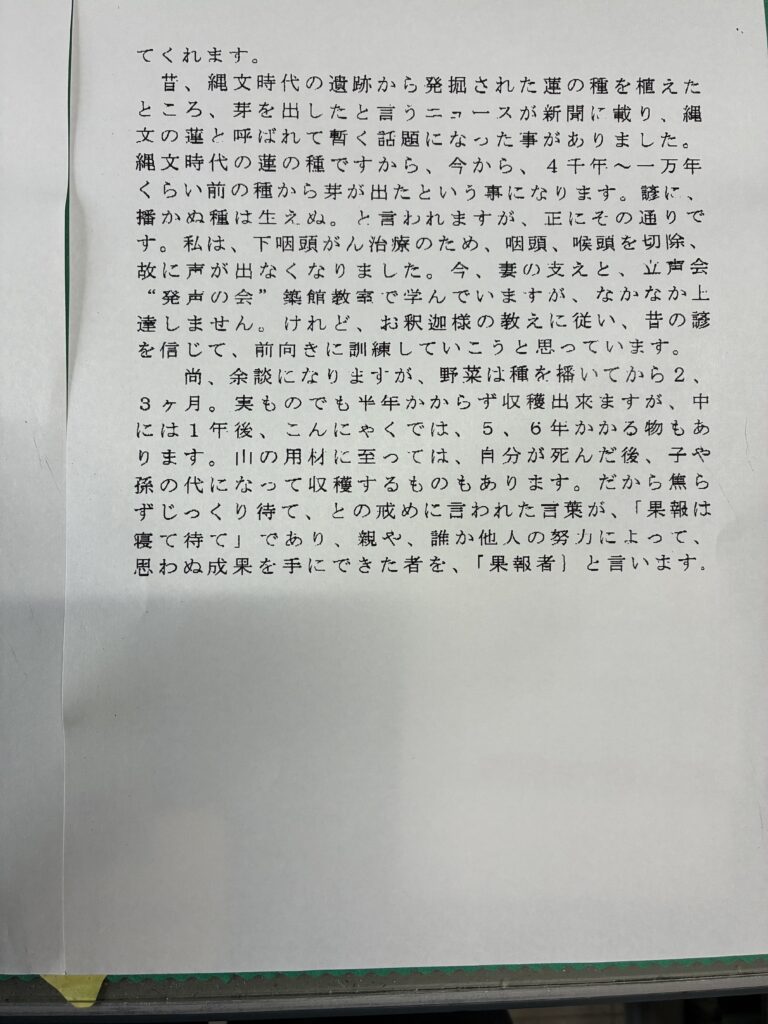 てくれます。
昔、縄文時代の遺跡から発掘された蓮の種を植えた
ところ、芽を出したと言うニュースが新聞に載り、縄
文の蓮と呼ばれて暫く話題になった事がありました。
縄文時代の蓮の種ですから、今から、４千年～一万年
くらい前の種から芽が出たという事になります。諺に、
播かぬ種は生えぬ。と言われますが、正にその通りで
す。私は、下咽頭がん治療のため、咽頭、喉頭を切除、
故に声が出なくなりました。今、妻の支えと、立声会
“発声の会”築館教室で学んでいますが、なかなか上
達しません。けれど、お釈迦様の教えに従い、昔の諺
を信じて、前向きに訓練していこうと思っています。
尚、余談になりますが、野菜は種を播いてから２、
３ヶ月。実ものでも半年かからず収穫出来ますが、中
には１年後、こんにゃくでは、５、６年かかる物もあ
ります。山の用材に至っては、自分が死んだ後、子や
孫の代になって収穫するものもあります。だから焦ら
ずじっくり待て、との戒めに言われた言葉が、「果報は
寝て待て」であり、親や、誰か他人の努力によって、
思わぬ成果を手にできた者を、「果報者｝と言います。